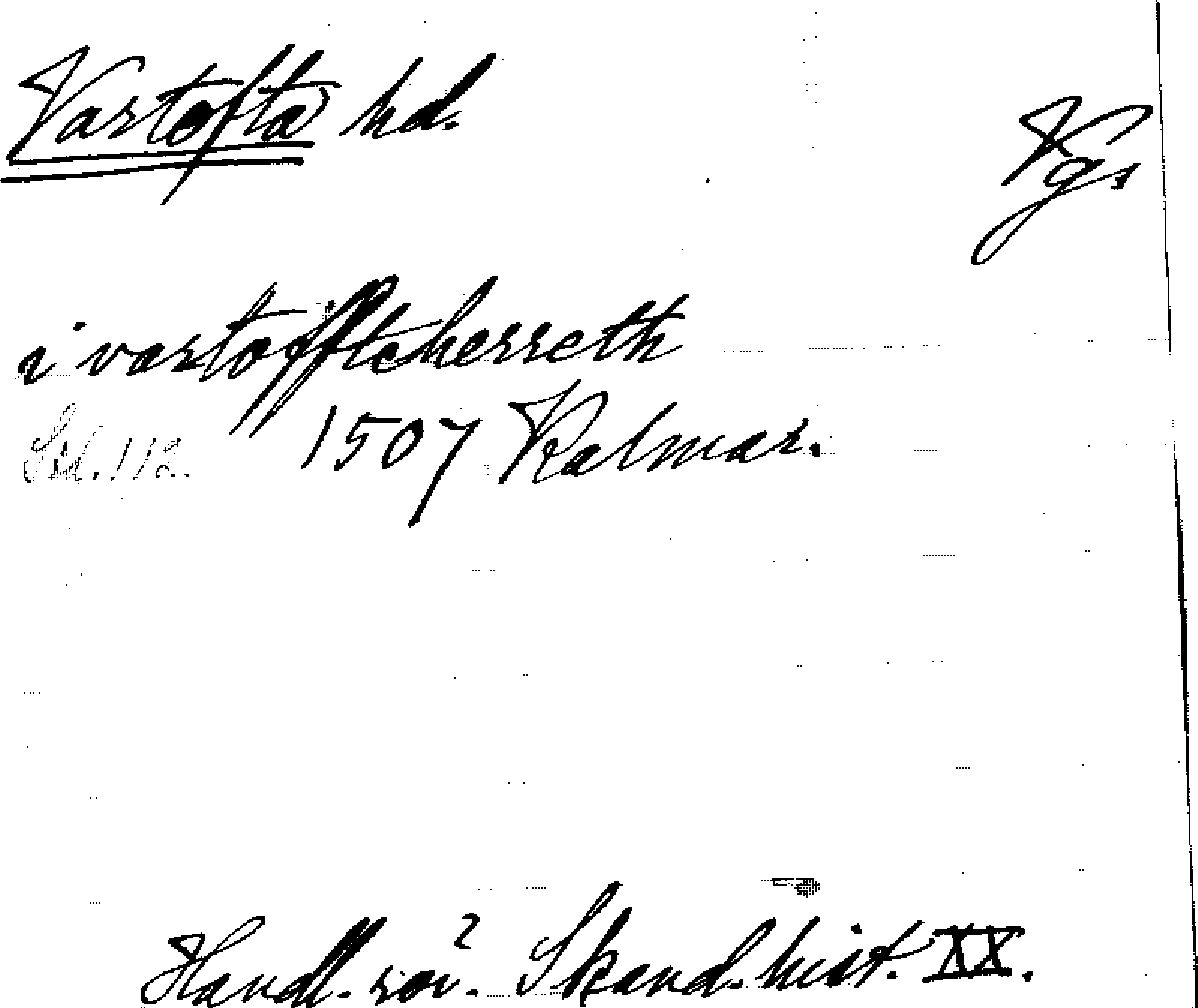 Vartofta hd.
Vg.
i vartoffteherreth
Sid. 112. 1507 Kalmar.
Handl. rör. Skand. hist. XX.